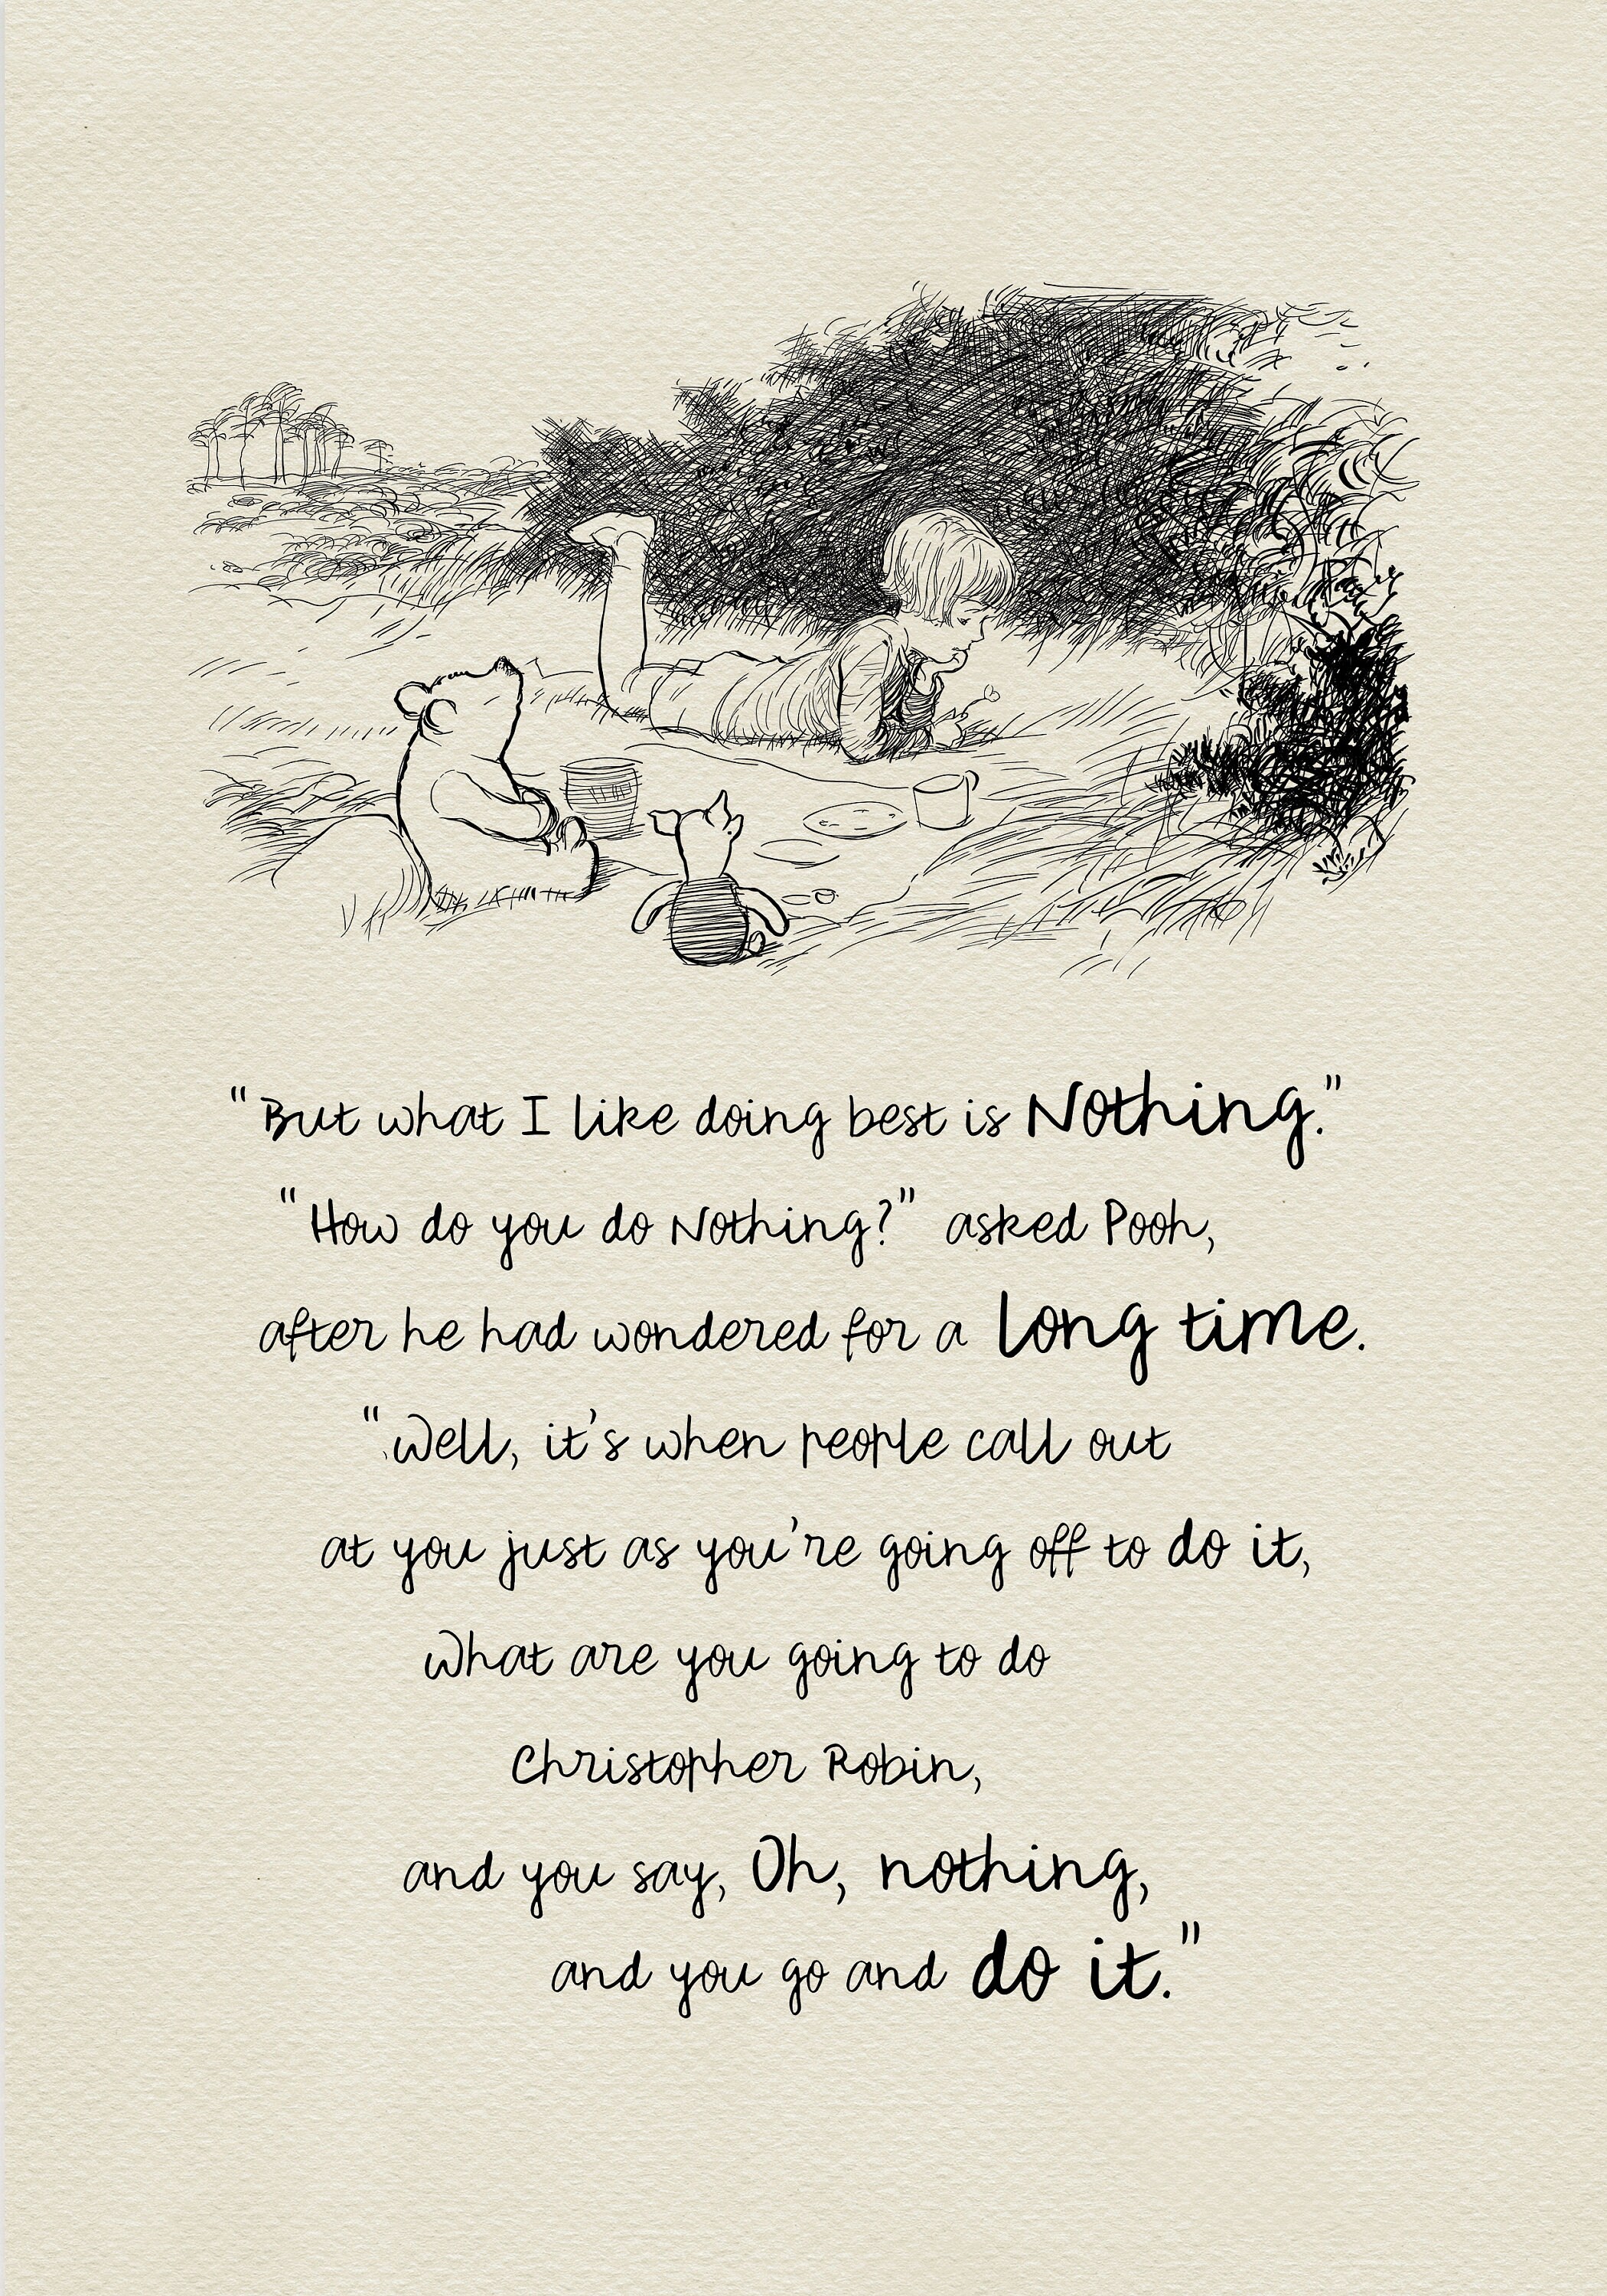 "But what I like doing best is Nothing."
"How do you do Nothing?" asked Pooh,
after he had wondered for a long time.
"Well, it's when people call out
at you just as you're going off to do it,
What are you going to do
Christopher Robin,
and you say, Oh, nothing,
and you go and do it."